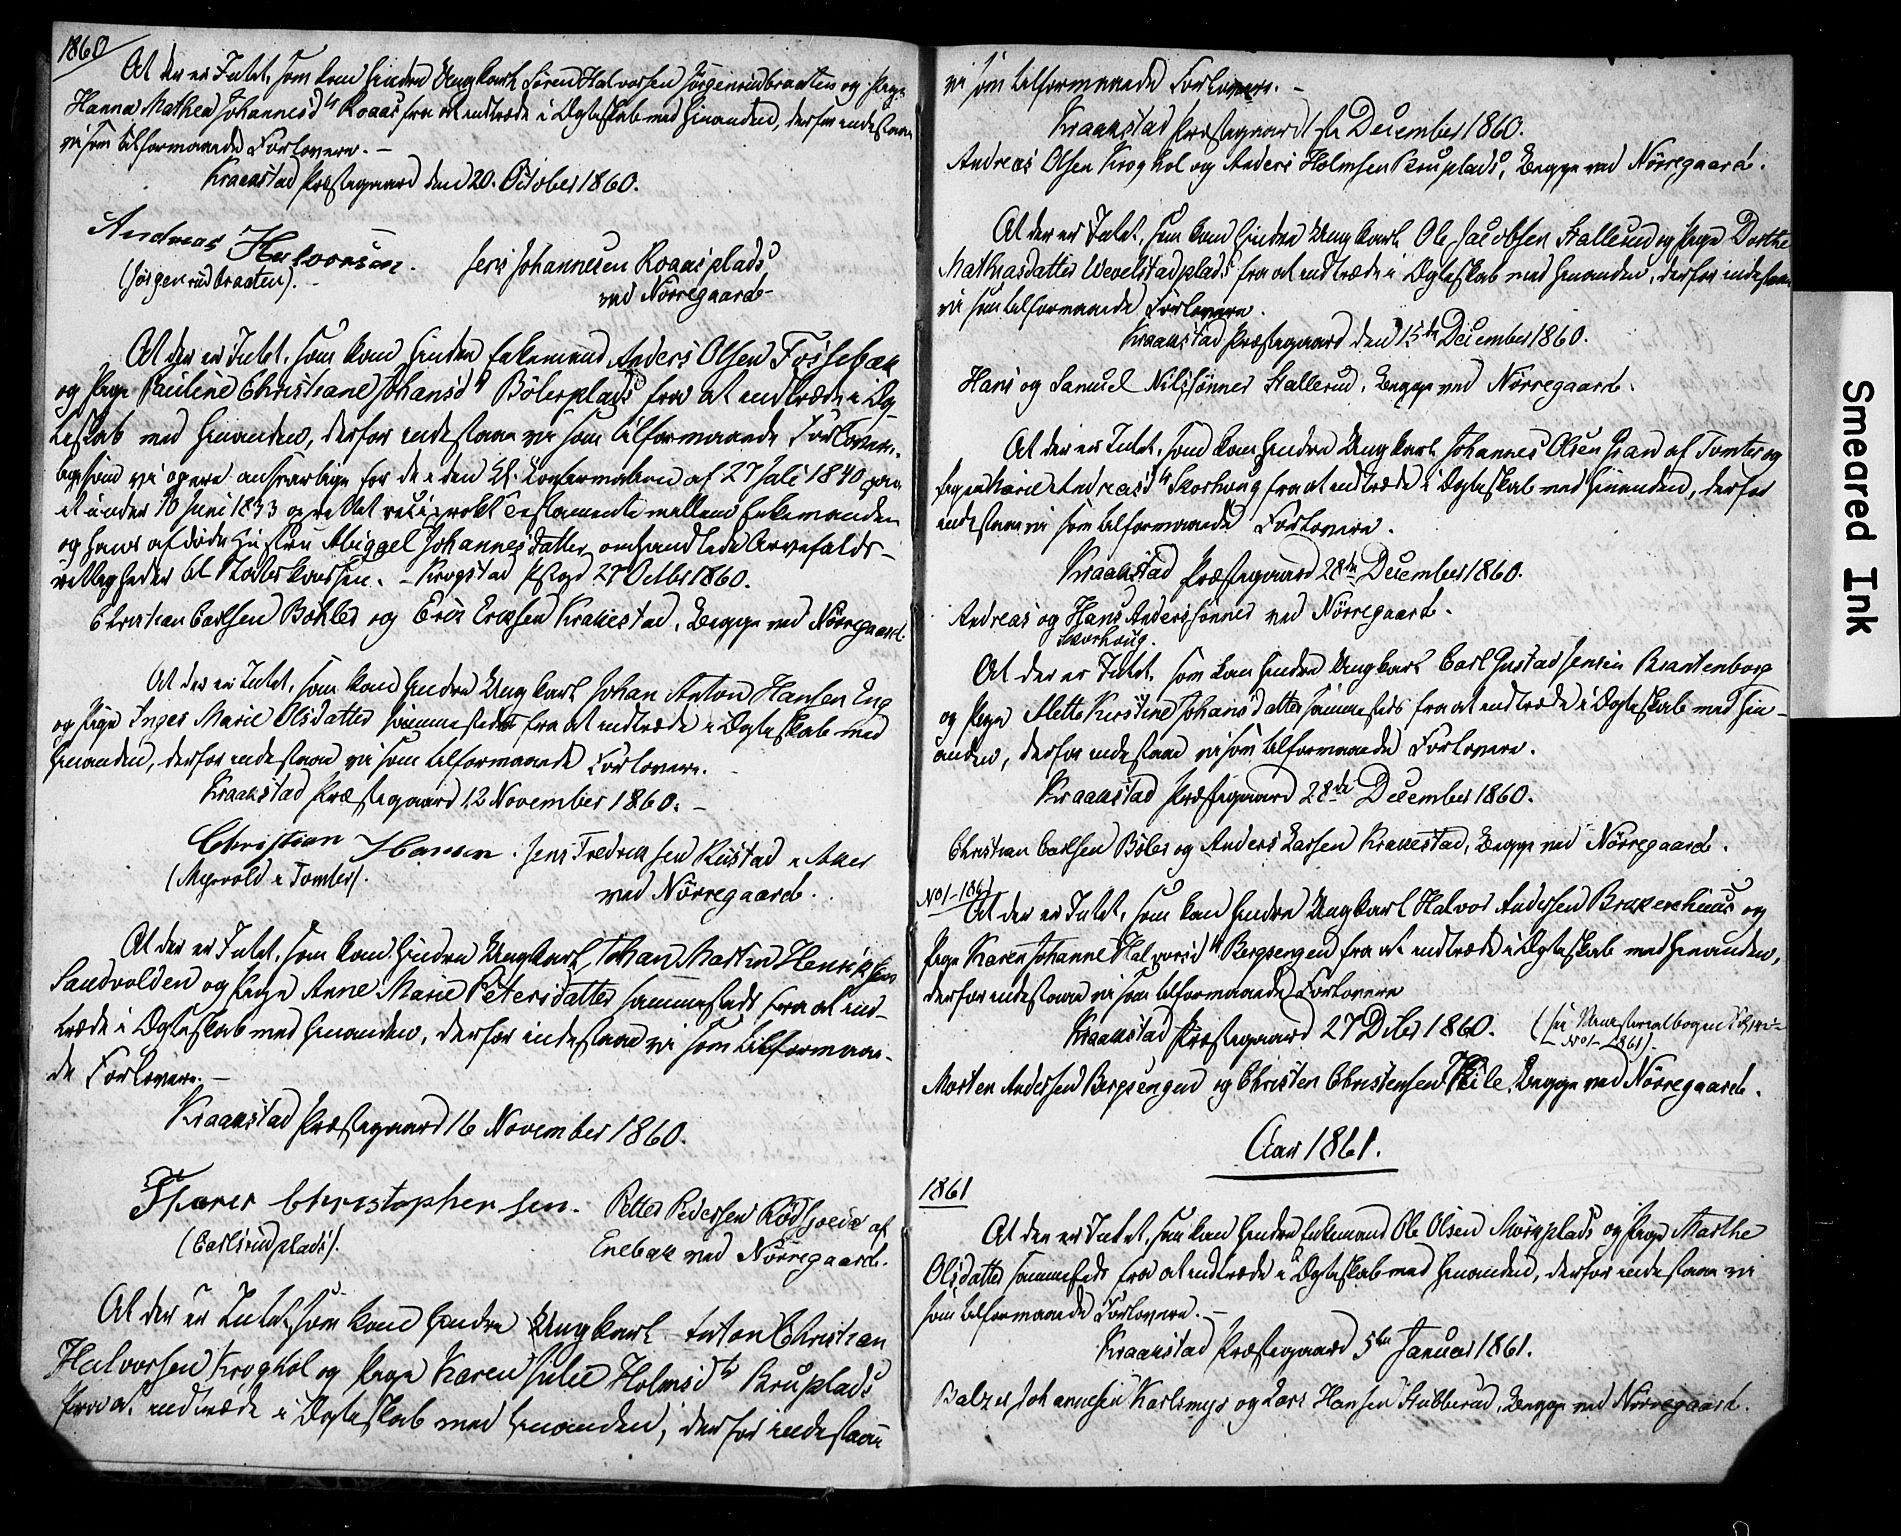 1860
At der er Intet, som kan hindre Ungkarl Søren Halvorsen Jørgenrudbraaten og Pige
Hanna Mathea Johannesdtr Roaas fra at indtræde i Ægteskab med hinanden, derfor indestaae
vi som tilformaaede Forlovere. –
Kraakstad Præstegaard den 20. October 1860.
Andreas Halvorsen.
(Jørgenrudbraaten). –
Jens Johannesen Roaasplads,
ved Nörregaard –
At der er Intet, som kan hindre Enkemand Anders Olsen Fossebæk
og Pige Pauline Christiane Johansdtr Bölerplads fra at indtræde i Æg-
teskab med hinanden, derfor indestaae vi som tilformaaede Forlovere,
ligesom vi ogsaa ansvarlige for de i den Kl. Confirmation af 27 Juli 1840 paa
et under 10 Juni 1833 oprettet reciprokt Testamente mellem Enkemanden
og hans afdøde Hustru Abiggel Johannesdatter omhandlede Arvefalds-
rettigheder til Statskassen. – Krogstad Pstgd 27 Octbr 1860.
Christian Carlsen Böhler og Erik Eriksen Krakestad, begge ved Nörregaard.
At der er Intet, som kan hindre Ungkarl Johan Anton Hansen Eng
og Pige Inger Marie Olsdatter sammesteds fra at indtræde i Ægteskab med
hinanden, derfor indestaae vi som tilformaaede Forlovere.
Kraakstad Præstegaard 12 November 1860. –
Christian Hansen.
(Myrvold i Tomter).
Jens Fredriksen Rustad i Aker
ved Nörregaard.
At der er Intet, som kan hindre Ungkarl Johan Martin Henriksen
Sandvolden og Pige Anne Marie Petersdatter sammesteds fra at ind-
træde i Ægteskab med hinanden, derfor indestaae vi som tilformaae-
de Forlovere. –
Kraakstad Præstegaard 16 November 1860.
Thorer Christophersen.
(Carlsrudplads).
Petter Pedersen Rödsjoeie af
Enebak ved Nörregaard.
At der er Intet, som kan hindre Ungkarl Anton Christian
Halvorsen Kroghol og Pige Karen Julie Holmsdtr Bruplads
fra at indtræde i Ægteskab med hinanden, derfor indestaae
vi som tilformaaede Forlovere. –
Kraakstad Præstegaard 1ste December 1860.
Andreas Olsen Kroghol og Anders Holmsen Bruplads, begge ved Nörregaard.
At der er Intet, som kan hindre Ungkarl Ole Jacobsen Stallerud og Pige Dorthe
Mathiasdatter Wevelstadplads fra at indtræde i Ægteskab med hinanden, derfor indestaae
vi som tilformaaede Forlovere.
Kraakstad Præstegaard den 15de December 1860.
Hans og Samuel Nilssönner Stallerud, begge ved Nörregaard.
At der er Intet, som kan hindre Ungkarl Johannes Olsen Gran af Tomter og
Pigen Marie Andreasdtr Skorhaug fra at indtræde i Ægteskab med hinanden, derfor
indestaae vi som tilformaaede Forlovere.
Kraakstad Præstegaard 28de December 1860.
Andreas og Hans Anderssönner ved Nörregaard.
Skorhaug.
At der er Intet, som kan hindre Ungkarl Carl Gustav Jensen Brantenborg
og Pige Mette Kirstine Johansdatter sammesteds fra at indtræde i Ægteskab med hin-
anden, derfor indestaae vi som tilformaaede Forlovere.
Kraakstad Præstegaard 28de December 1860.
Christian Carlsen Böler og Anders Larsen Krakestad, begge ved Nörregaard.
No 1 – 1861
At der er Intet, som kan hindre Ungkarl Halvor Andersen Brakerehuus og
Pige Karen Johanne Halvorsdtr Bergsengen fra at indtræde i Ægteskab med hinanden,
derfor indestaae vi som tilformaaede Forlovere
Kraakstad Præstegaard 27 Dcbr 1860.
(see Ministerialbogen
No 1 – 1861).
Morten Andersen Bergsengen og Christen Christensen Skile, begge ved Nörregaard.
Aar 1861.
1861
At der er Intet, som kan hindre Enkemand Ole Olsen Mörkplads og Pige Marthe
Olsdatter sammesteds fra at indtræde i Ægteskab med hinanden, derfor indestaae vi
som tilformaaede Forlovere. –
Kraakstad Præstegaard 5te Januar 1861.
Balzer Johannesen Karlsmyr og Lars Hansen Stubberud, begge ved Nörregaard.
Smeared Ink